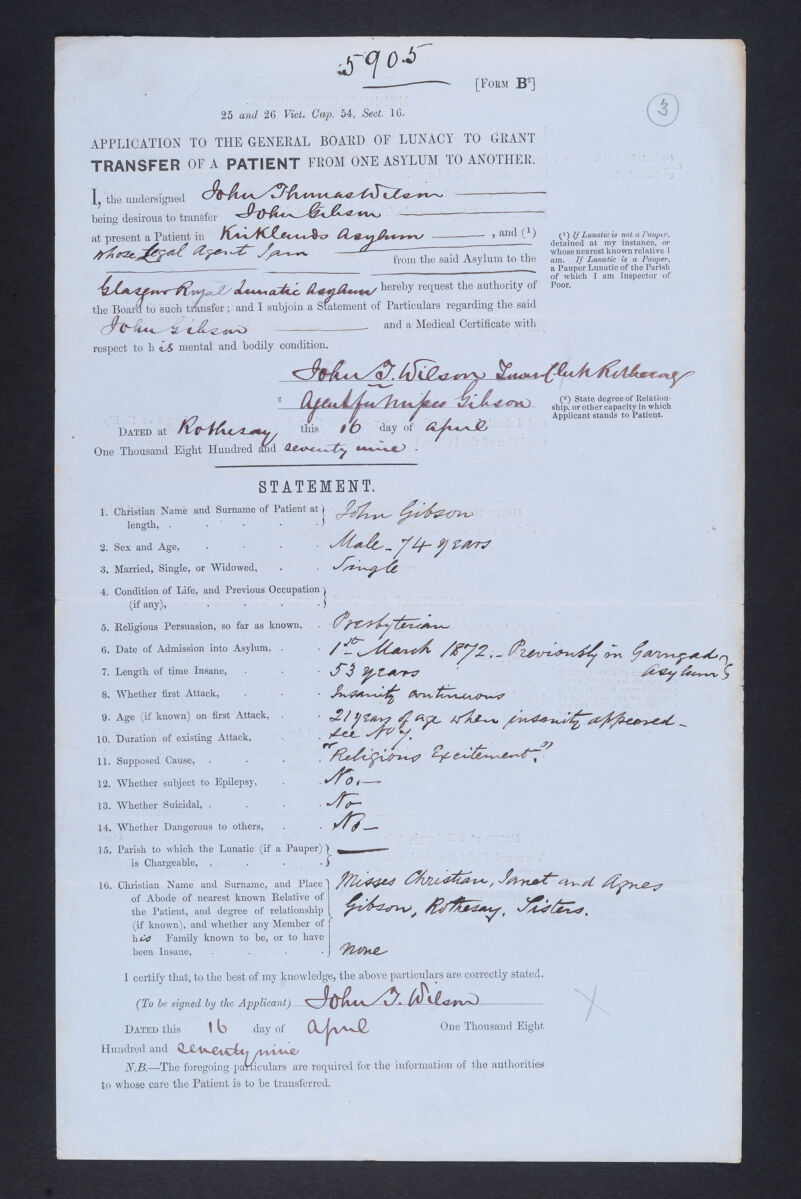 5905
[FORM B²]
3
25 and 26 Vict. Cap. 54, Sect. 16.
APPLICATION TO THE GENERAL BOARD OF LUNACY TO GRANT
TRANSFER OF A PATIENT FROM ONE ASYLUM TO ANOTHER.
I, the undersigned John Thomas Wilson
being desirous to transfer John Gibson
at present a Patient in Kirklands Asylum, and (¹)
whose Legal Agent I am from the said Asylum to the
Glasgow Royal Lunatic Asylum hereby request the authority of
the Board to such transfer; and I subjoin a Statement of Particulars regarding the said
John Gibson and a Medical Certificate with
respect to his mental and bodily condition.
(¹) If Lunatic is not a Pauper,
detained at my instance, or
whose nearest known relative I
am. If Lunatic is a Pauper,
a Pauper Lunatic of the Parish
of which I am Inspector of
Poor.
John T. Wilson Town Clerk Rothesay
² Agent for Misses Gibson
(²) State degree of Relation-
ship, or other capacity in which
Applicant stands to Patient.
DATED at Rothesay this 16 day of April
One Thousand Eight Hundred and seventy nine.
STATEMENT.
1. Christian Name and Surname of Patient at
length, . John Gibson
2. Sex and Age, Male - 74 years
3. Married, Single, or Widowed, Single
4. Condition of Life, and Previous Occupation
(if any),
5. Religious Persuasion, so far as known, Presbyterian
6. Date of Admission into Asylum, 1st March 1872. - Previously in Garngad
Asylum
7. Length of time Insane, 53 years
8. Whether first Attack, Insanity continuous
9. Age (if known) on first Attack, 21 years of age when insanity appeared -
10. Duration of existing Attack, see No 7.
11. Supposed Cause, "Religious Excitement."
12. Whether subject to Epilepsy, No. -
13. Whether Suicidal, No
14. Whether Dangerous to others, No -
15. Parish to which the Lunatic (if a Pauper)
is Chargeable, —
16. Christian Name and Surname, and Place
of Abode of nearest known Relative of
the Patient, and degree of relationship
(if known), and whether any Member of
his Family known to be, or to have
been Insane,
Misses Christian, Janet and Agnes
Gibson, Rothesay, Sisters.
None
I certify that, to the best of my knowledge, the above particulars are correctly stated.
(To be signed by the Applicant) John T. Wilson
DATED this 16 day of April One Thousand Eight
Hundred and seventy nine
N.B.—The foregoing particulars are required for the information of the authorities
to whose care the Patient is to be transferred.
X